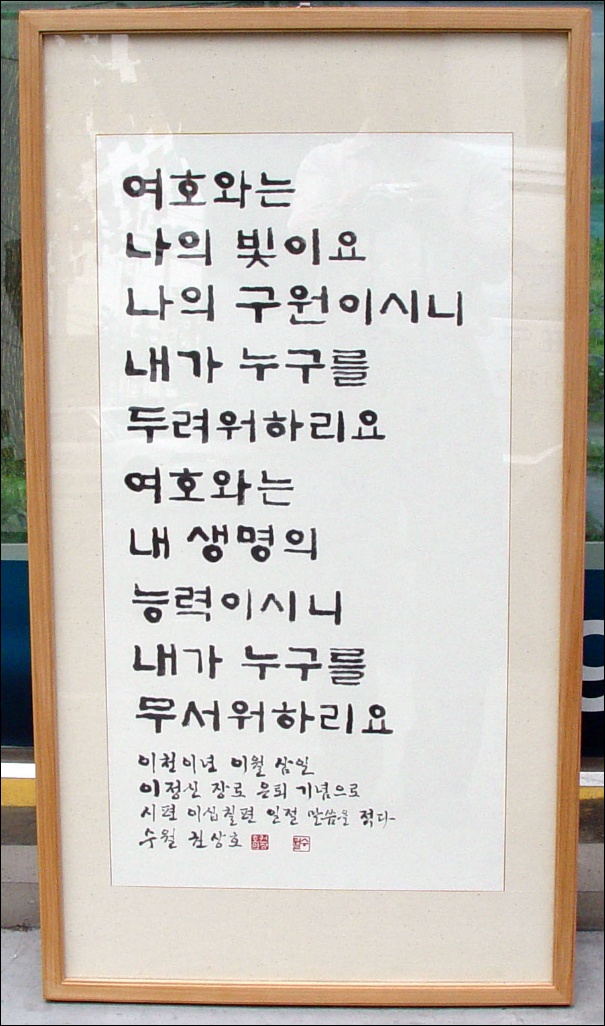 여호와는
나의 빛이요
나의 구원이시니
내가 누구를
두려워하리요
여호와는
내 생명의
능력이시니
내가 누구를
무서워하리요
이천이년 이월 삼일
이정신 장로 은퇴 기념으로
시편 이십칠편 일절 말씀을 적다
수월 권상호